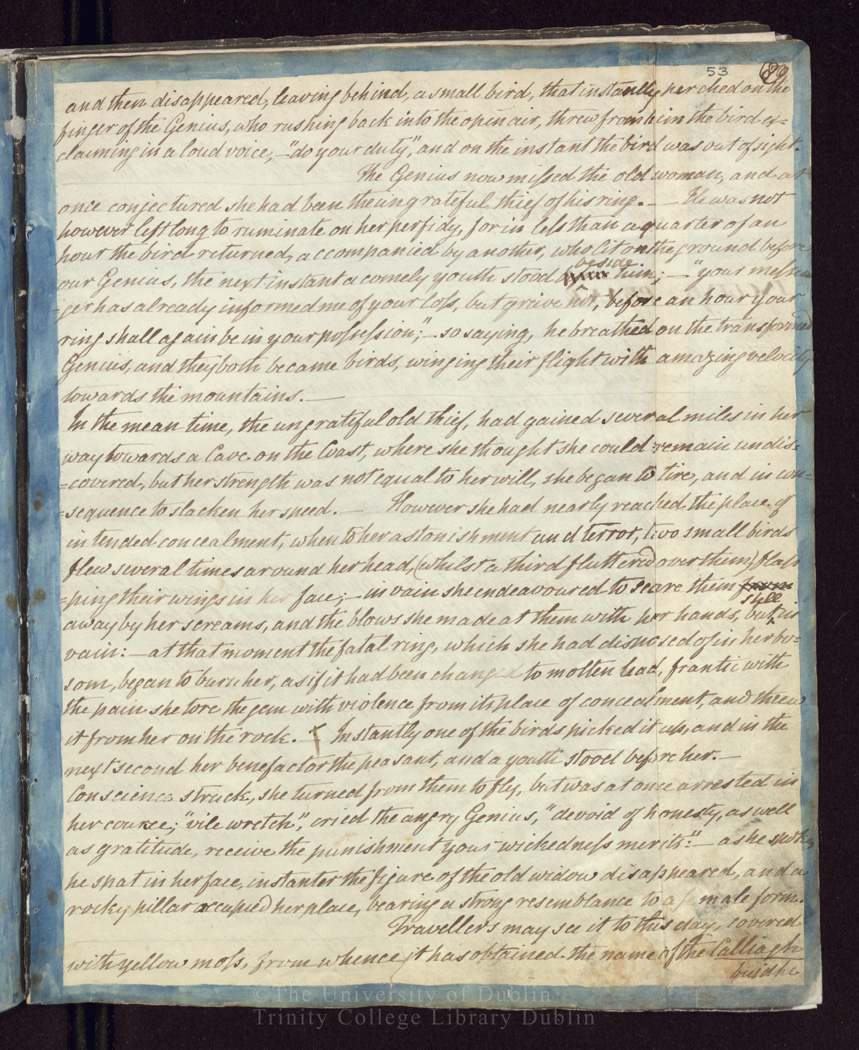 53
and then disappeared, leaving behind, a small bird, that instantly perched on the
finger of the Genius, who rushing back into the open air, threw from him the bird ex=
claiming in a loud voice, – "do your duty", and on the instant the bird was out of sight.
The Genius now missed the old woman, and at
once conjectured she had been the ungrateful thief of his ring. — He was not
however left long to ruminate on her perfidy, for in less than a quarter of an
hour the bird returned, accompanied by another, who lit on the ground before
beside
our Genius, the next instant a comely youth stood him; – "your messen
=ger has already informed me of your loss, but greive not, before an hour your
ring shall again be in your possession;" – so saying, he breathed on the transformed
Genius, and they both became birds, winging their flight with amazing velocity
towards the mountains. —
In the mean time, the ungrateful old thief, had gained several miles in her
way towards a Cave on the Coast, where she thought she could remain undis=
=covered, but her strength was not equal to her will, she began to tire, and in con=
=sequence to slacken her speed. — However she had nearly reached the place of
intended concealment, when to her astonishment and terror, two small birds
flew several times around her head, (whilst a third fluttered over them) flap
=ping their wings in her face; – in vain she endeavoured to scare them from
still
away by her screams, and the blows she made at them with her hands, but in
vain: – at that moment the fatal ring, which she had disposed of in her bo=
som, began to burn her, as if it had been changed to molten lead, frantic with
the pain she tore the gem with violence from its place of concealment, and threw
it from her on the rock. [ Instantly one of the birds picked it up, and in the
next second her benefactor the peasant, and a youth stood before her. —
Conscience struck, she turned from them to fly, but was at once arrested in
her cource; "vile wretch", cried the angry Genius, "devoid of honesty, as well
as gratitude, receive the punishment your wickedness merits." – as he spoke,
he spat in her face, instanter the figure of the old widow disappeared, and a
rocky pillar occupied her place, bearing a strong resemblance to a male form.
Travellers may see it to this day, covered
with yellow moss, from whence it has obtained the name of the Calliagh
buidhe
©The University of Dublin
Trinity College Library Dublin